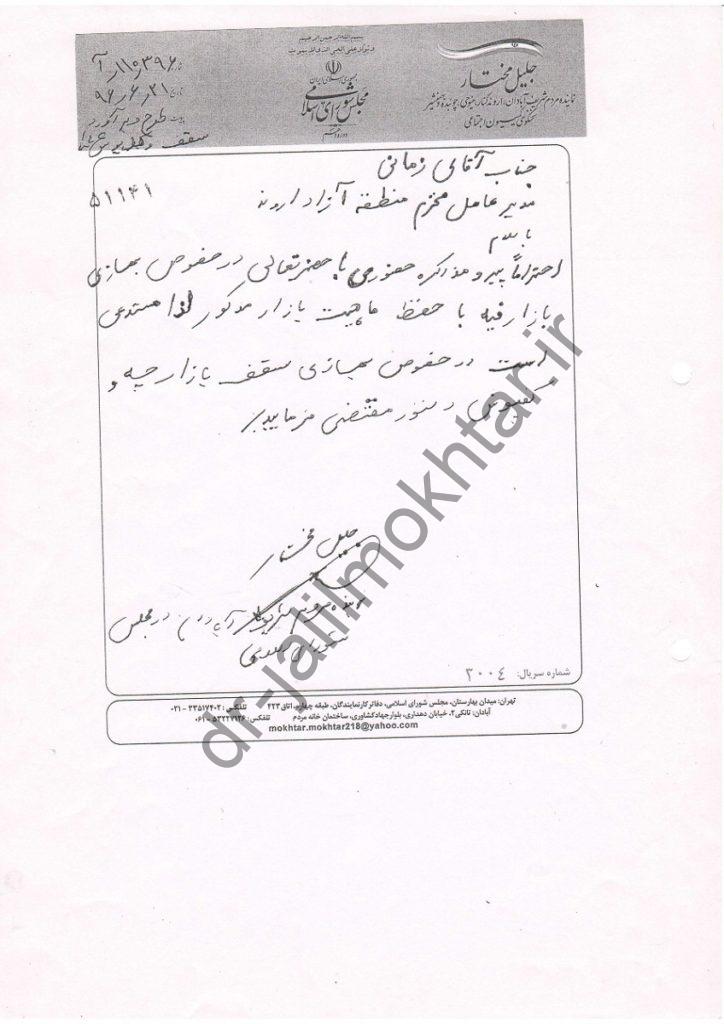 بسم الله الرحمن الرحیم
جلیل مختار
نماینده مردم شریف آبادان، اروندکنار، مینوی، چوئبده و خسروآباد
سخنگوی کمیسیون اجتماعی
جمهوری اسلامی ایران
مجلس شورای اسلامی
دوره دهم
۱۱۰۳۹۶/آ
تاریخ ۹۶/۶/۲۱
پیوست طرح و برآورد
سقف و
۵۱۱۴۱
جناب آقای زمانی
مدیر عامل محترم منطقه آزاد اروند
با سلام
احتراماً پیرو مذاکره حضوری با حضرتعالی در خصوص بهسازی
بازار فیه با حفظ ماهیت بازار مذکور لذا مستدعی
است در خصوص بهسازی سقف بازارچه و
کفپوش دستور مقتضی فرمایید
جلیل مختار
نماینده مردم شریف آبادان در مجلس
شورای اسلامی
شماره سریال: ۳۰۰۴
تهران: میدان بهارستان، مجلس شورای اسلامی، دفاتر کار نمایندگان، طبقه چهارم، اتاق ۴۲۳ تلفکس: ۳۳۵۱۷۴۰۲ - ۰۲۱
آبادان: تانکی ۲، خیابان دهداری، بلوار جهاد کشاورزی، ساختمان خانه مردم تلفکس: ۵۳۲۲۷۹۳۶ - ۰۶۱
mokhtar.mokhtar218@yahoo.com
dr-jalilmokhtar.ir